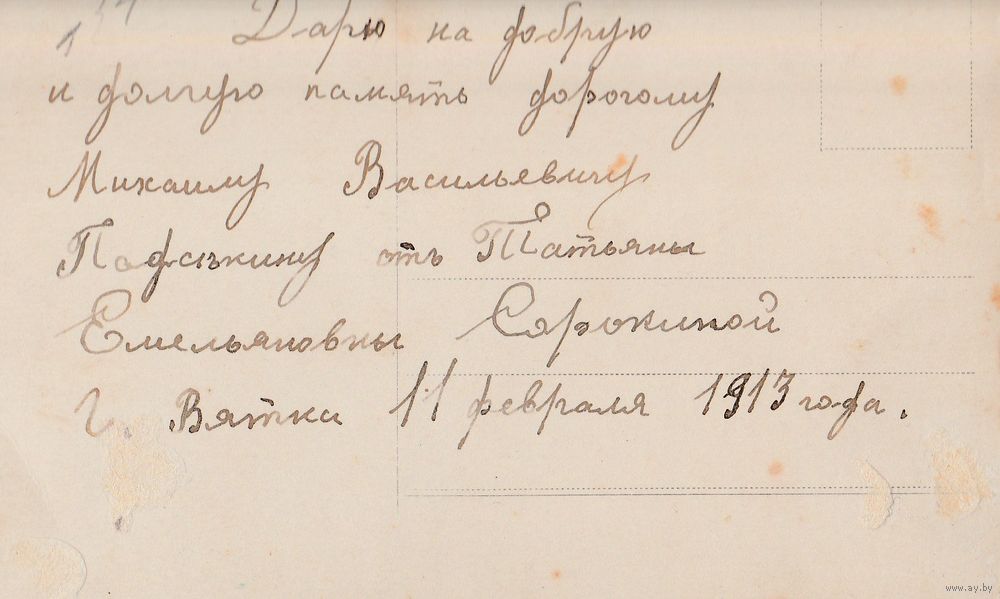 Дарю на добрую
и долгую память дорогому
Михаилу Васильевичу
отъ Татьяны
Емельяновны Сорокиной
г. Вятка 11 февраля 1913 года.
www.ay.by